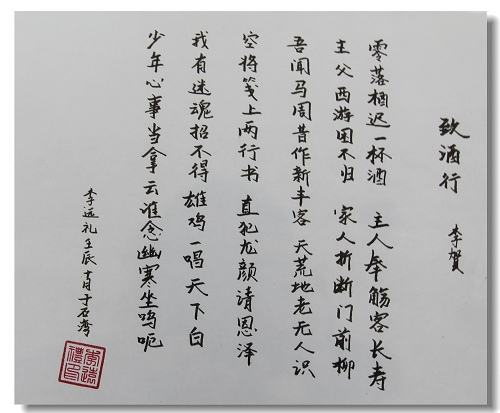 致酒行
李贺
零落栖迟一杯酒 主人奉觞客长寿
主父西游困不归 家人折断门前柳
吾闻马周昔作新丰客 天荒地老无人识
空将笺上两行书 直犯龙颜请恩泽
我有迷魂招不得 雄鸡一唱天下白
少年心事当拿云谁念幽寒坐呜呃
李远礼壬辰 月于石湾
李遠禮印